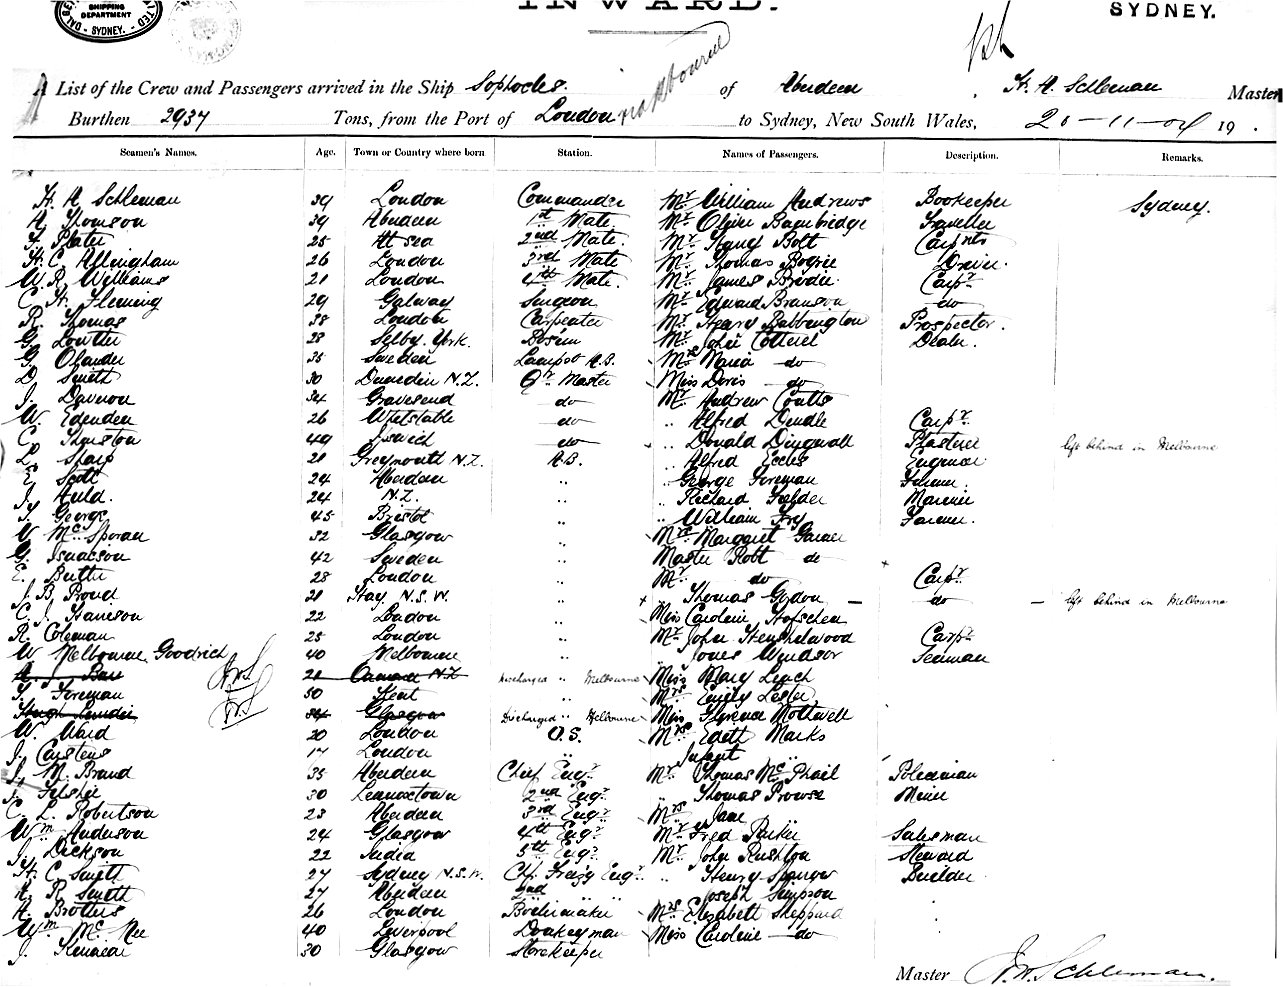 SHIPPING
DEPARTMENT
SYDNEY.
INWARD.
SYDNEY.
A List of the Crew and Passengers arrived in the Ship Sophocles. of Aberdeen, H. A. Schleman Master
Burthen 2937 Tons, from the Port of London Melbourne to Sydney, New South Wales, 20-11-04 19 .
Seamen's Names. Age. Town or Country where born Station. Names of Passengers. Description. Remarks.
H. A. Schleman 39 London Commander Mr William Andrews Bookeeper Sydney.
A. Thomson 39 Aberdeen 1st Mate. Mr Bambridge Traveller
Slater 25 At sea 2nd Mate. Mr Bolt
H. C. Allingham 26 London 3rd Mate Mr Thomas
W. R. Williams 21 London 4th Mate. Mr James Brodie Carpr
C. H. Fleming 29 Galway Surgeon Mr Edward Branson do
R. Thomas 38 London Carpenter Mr Henry Babbington Prospector.
G. Lowther 28 Selby. York. Bosun Mr John Cotterel Dealer.
G. Olander 35 Sweden Lamps A.B. Mrs Maria do
D. Smith 30 Dunedin N.Z. Qr Master Miss Doris do
J. 34 Gravesend do Mr Andrew Coutts
W. Edenden 26 Whitstable do " Alfred Dendle Carpr
C. Thurston 49 do " Donald Dingwall Plasterer left behind in Melbourne
L. Sharp 21 Greymouth N.Z. A.B. " Alfred Eccles Engineer
E. Scott 24 Aberdeen " " George Foreman Farmer.
J. Auld. 24 N.Z. " " Richard Mariner
George 45 Bristol " " William Fry Farmer.
W. Mc Sporan 32 Glasgow " Mrs Margaret Garner
G. Isaacson 42 Sweden " Master Robt do
E. 28 London " Mr do Carpr
J. B. Proud 21 Hay N.S.W. " " Thomas Gydon — do — left behind in Melbourne
C. J. Harrison 22 London " Miss Caroline
R. Coleman 25 London " Mr John Henshelwood Carpr
W. Melbourne Goodrich 40 Melbourne " Jones Windsor Seaman
21 N.Z. Discharged " Melbourne Miss Mary Lynch
T. Foreman 50 Kent " Mrs Emily Lester
Hugh 34 Glasgow Discharged " Melbourne Miss Florence Mothwell
W. Ward 20 London O.S. Mrs Edith Marks
J. Carstens 17 London " Infant "
J. M. Brand 35 Aberdeen Chief Engr. Mr Thomas McPhail Policeman
30 Lennoxtown 2nd Engr " Thomas Prowse Miner
C. L. Robertson 23 Aberdeen 3rd Engr Mrs Jane "
Wm Anderson 24 Glasgow 4th Engr Mr Fred Parker Salesman
J. Dickson 22 India 5th Engr Mr John Rushton Steward
H. C. Smith 27 Sydney N.S.W. Chf. Freezg Engr " Henry Spencer Builder
A. R. Smith 27 Aberdeen 2nd " " Joseph Simpson
H. Brothers 26 London Boilermaker Mrs Elizabeth Sheppard
Wm Mc Nee 40 Liverpool Donkeyman Miss Caroline do
J. 30 Glasgow Storekeeper
Master H. A. Schleman.